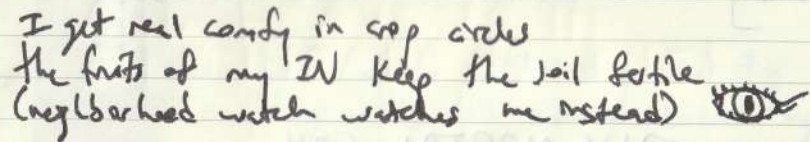 I get real comfy in crop circles
the fruits of my IV keep the soil fertile
(neighborhood watch watches me instead)